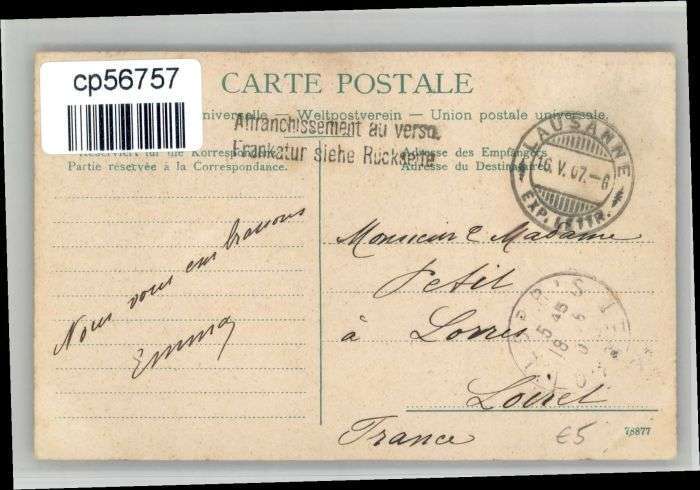 cp56757
CARTE POSTALE
Universelle — Weltpostverein — Union postale universale
Affranchissement au verso.
Frankatur siehe Rückseite
Reserviert für die Korrespondenz
Adresse des Empfängers
Partie réservée à la Correspondance.
Adresse du Destinataire
LAUSANNE
16.V.07.-6
EXP. LETTR.
Monsieur & Madame
Petit
à Lorris
Loiret
France
Nous vous embrassons
Emma
5 45
18 5
78877
€5